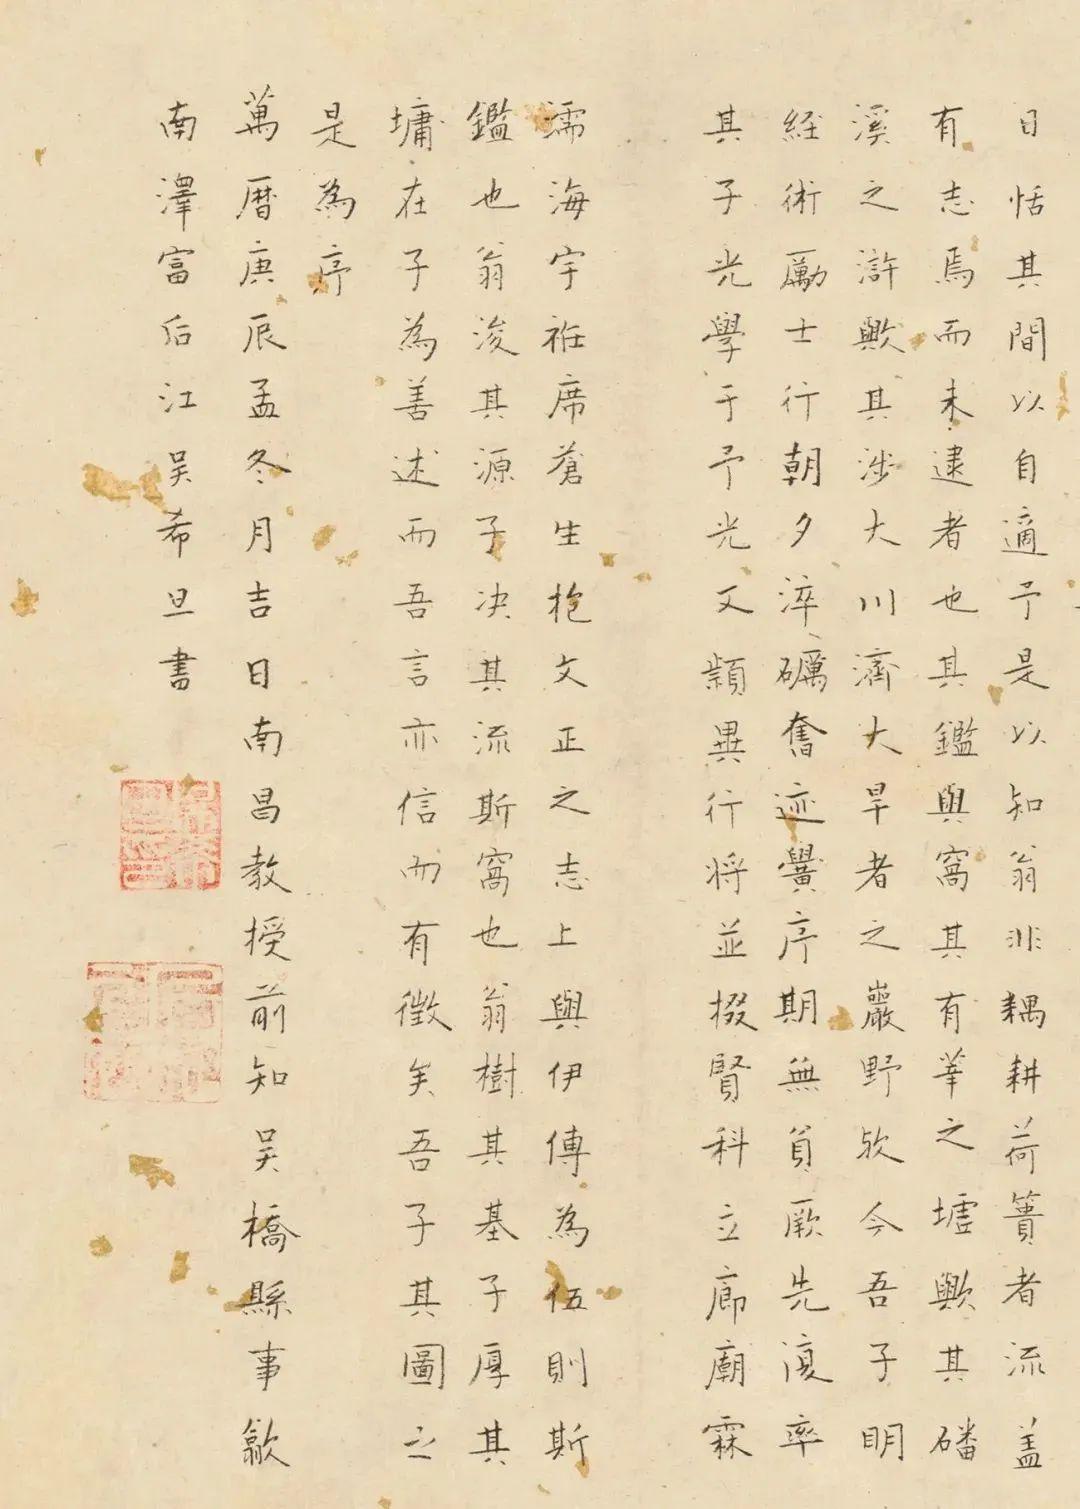 日恬其間以自適予是以知翁非耦耕荷蕢者流盖
有志焉而未逮者也其鑑與窩其有莘之墟歟其磻
溪之滸歟其涉大川濟大旱者之巖野欤今吾子明
経術勵士行朝夕淬礪奮迹黌序期無負厥先復率
其子光學于予光文頴異行将並掇賢科立廊廟霖
濡海宇袵席蒼生抱文正之志上與伊傅為伍則斯
鑑也翁浚其源子决其流斯窩也翁樹其基子厚其
墉在子為善述而吾言亦信而有徴矣吾子其圖之
是為序
萬曆庚辰孟冬月吉日南昌教授前知吴橋縣事歙
南澤富后江吴希旦書